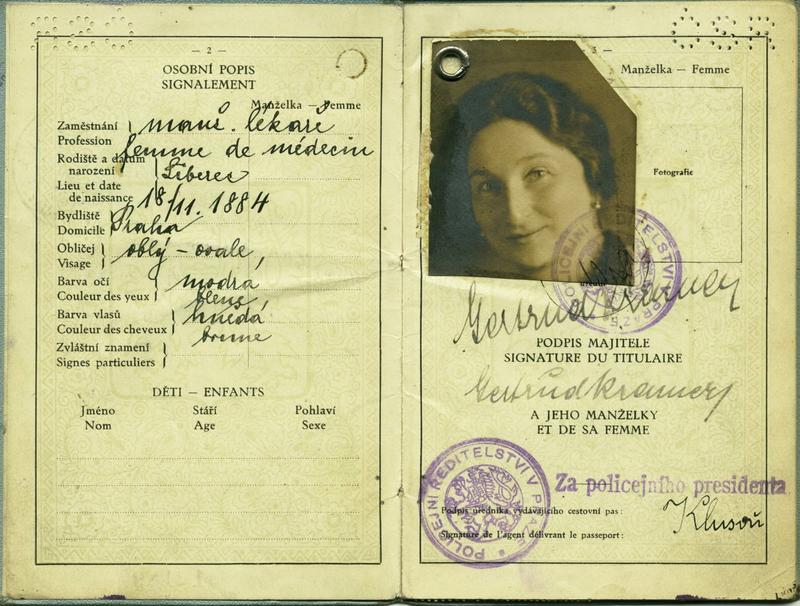 — 2 —
OSOBNÍ POPIS
SIGNALEMENT
Manželka — Femme
Zaměstnání
Profession
manž. lékaře
femme de médecin
Rodiště a datum
narození
Lieu et date
de naissance
Liberec
18/11. 1884
Bydliště
Domicile
Praha
Obličej
Visage
oblý – ovale,
Barva očí
Couleur des yeux
modrá
bleus
Barva vlasů
Couleur des cheveux
hnědá
brune
Zvláštní znamení
Signes particuliers
DĚTI — ENFANTS
Jméno Stáří Pohlaví
Nom Age Sexe
3 —
Manželka — Femme
Fotografie
POLICEJNÍ ŘEDITELSTVÍ V PRAZE
Gertrud
PODPIS MAJITELE
SIGNATURE DU TITULAIRE
Gertrud
A JEHO MANŽELKY
ET DE SA FEMME
Za policejního presidenta
Podpis úředníka vydávajícího cestovní pas:
Signature de l'agent délivrant le passeport:
POLICEJNÍ ŘEDITELSTVÍ V PRAZE